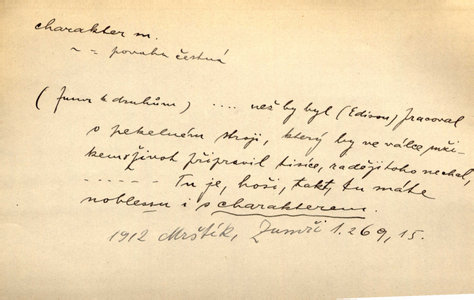 charakter m.
~ = povaha čestná
(Zumr k druhům) .... než by byl (Edison) pracoval
o pekelném stroji, který by ve válce mži-
kem život připravil tisíce, raději toho nechal,
------ Tu je, hoši, takt, tu máte
noblessu i s charakterem.
1912 Mrštík, Zumři 1.269,15.